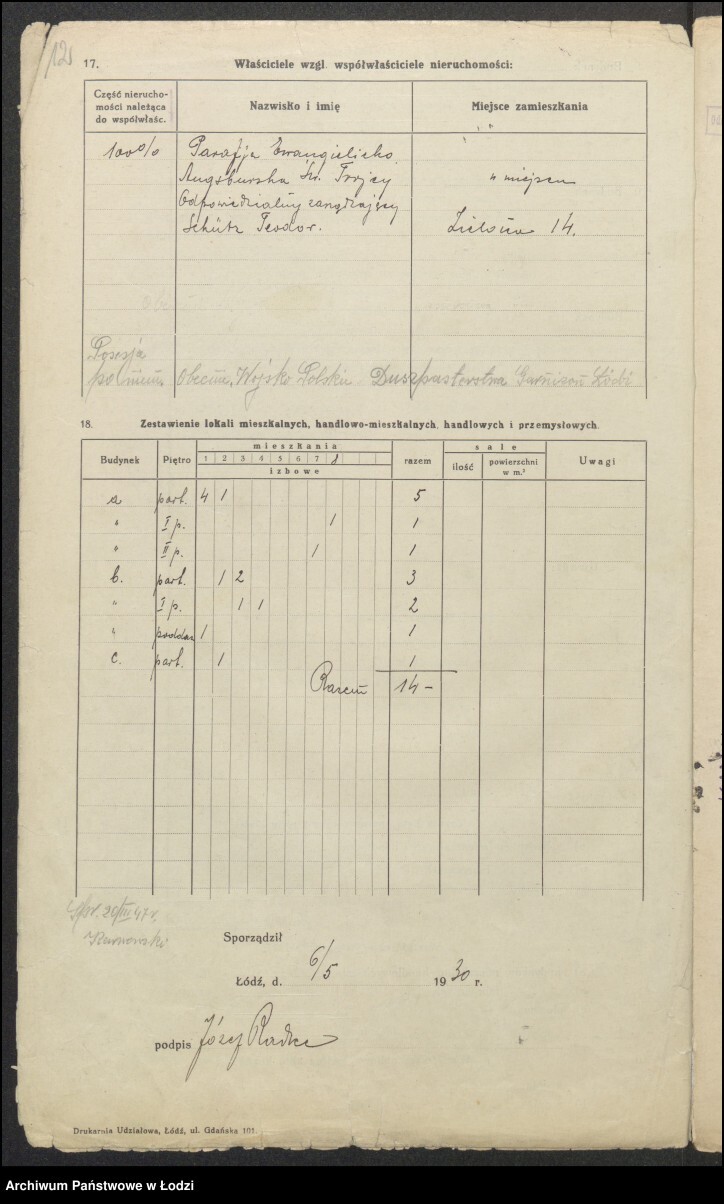 12
17. Właściciele wzgl. współwłaściciele nieruchomości:
Część nierucho-
mości należąca
do współwłaśc.
Nazwisko i imię
Miejsce zamieszkania
100% Parafja Ewangielicko
Augsburska Św. Trójcy " miejscu
Odpowiedzialny zarządzający
Schütz Teodor. Zielona 14.
Posesja
poniem. Obecnie, Wojsko Polskie Duszpasterstwa Garnizon Łódź
18. Zestawienie lokali mieszkalnych, handlowo-mieszkalnych, handlowych i przemysłowych.
Budynek Piętro mieszkania razem sale Uwagi
1 2 3 4 5 6 7 8
izbowe
ilość powierzchni
w m.²
a part. 4 1 5
" I p. 1 1
" II p. 1 1
b. part. 1 2 3
" I p. 1 1 2
" poddas 1 1
c. part. 1 1
Razem 14 -
Spr. 20/III 47 r.
Sporządził
Łódź, d. 6/5 1930 r.
podpis Józef
Drukarnia Udziałowa, Łódź, ul. Gdańska 101.
Archiwum Państwowe w Łodzi